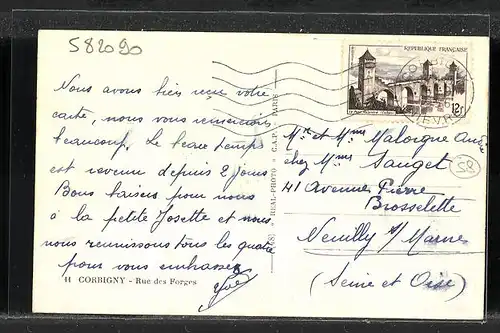 582090
Nous avons bien reçu votre
carte, nous vous remercions
beaucoup. Le beau temps
est revenu depuis 2 jours
Bons baisers pour nous
à la petite Josette et nous
nous reunissons tous les quatre
pour vous embrasser
11 CORBIGNY - Rue des Forges
REAL-PHOTO ♦ C.A.P. ♦ PARIS
REPUBLIQUE FRANÇAISE
12f
Mr et Mme Malorgne André
chez Mme Sauget
58
41 Avenue Pierre
Brosselette
Neuilly s/ Marne
(Seine et Oise)